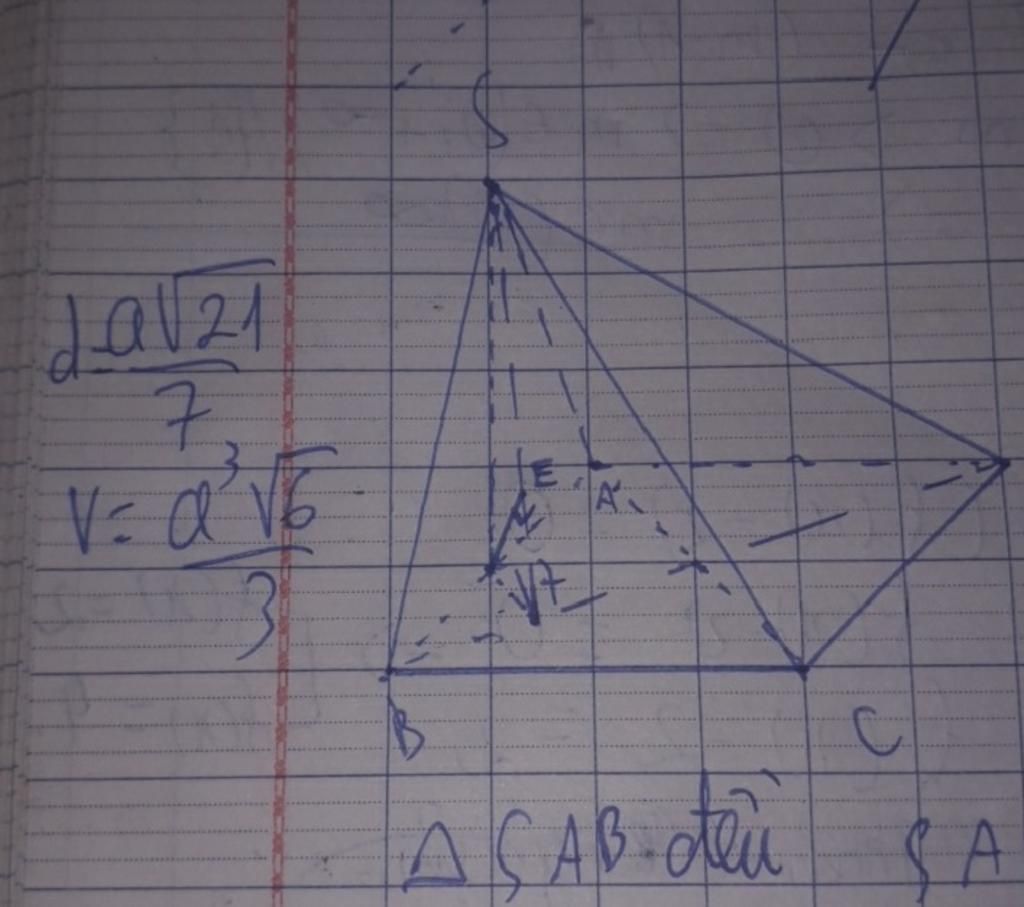 S
d = a√21/7
V = a³√6/3
E
A
B
C
Δ SAB đều SA